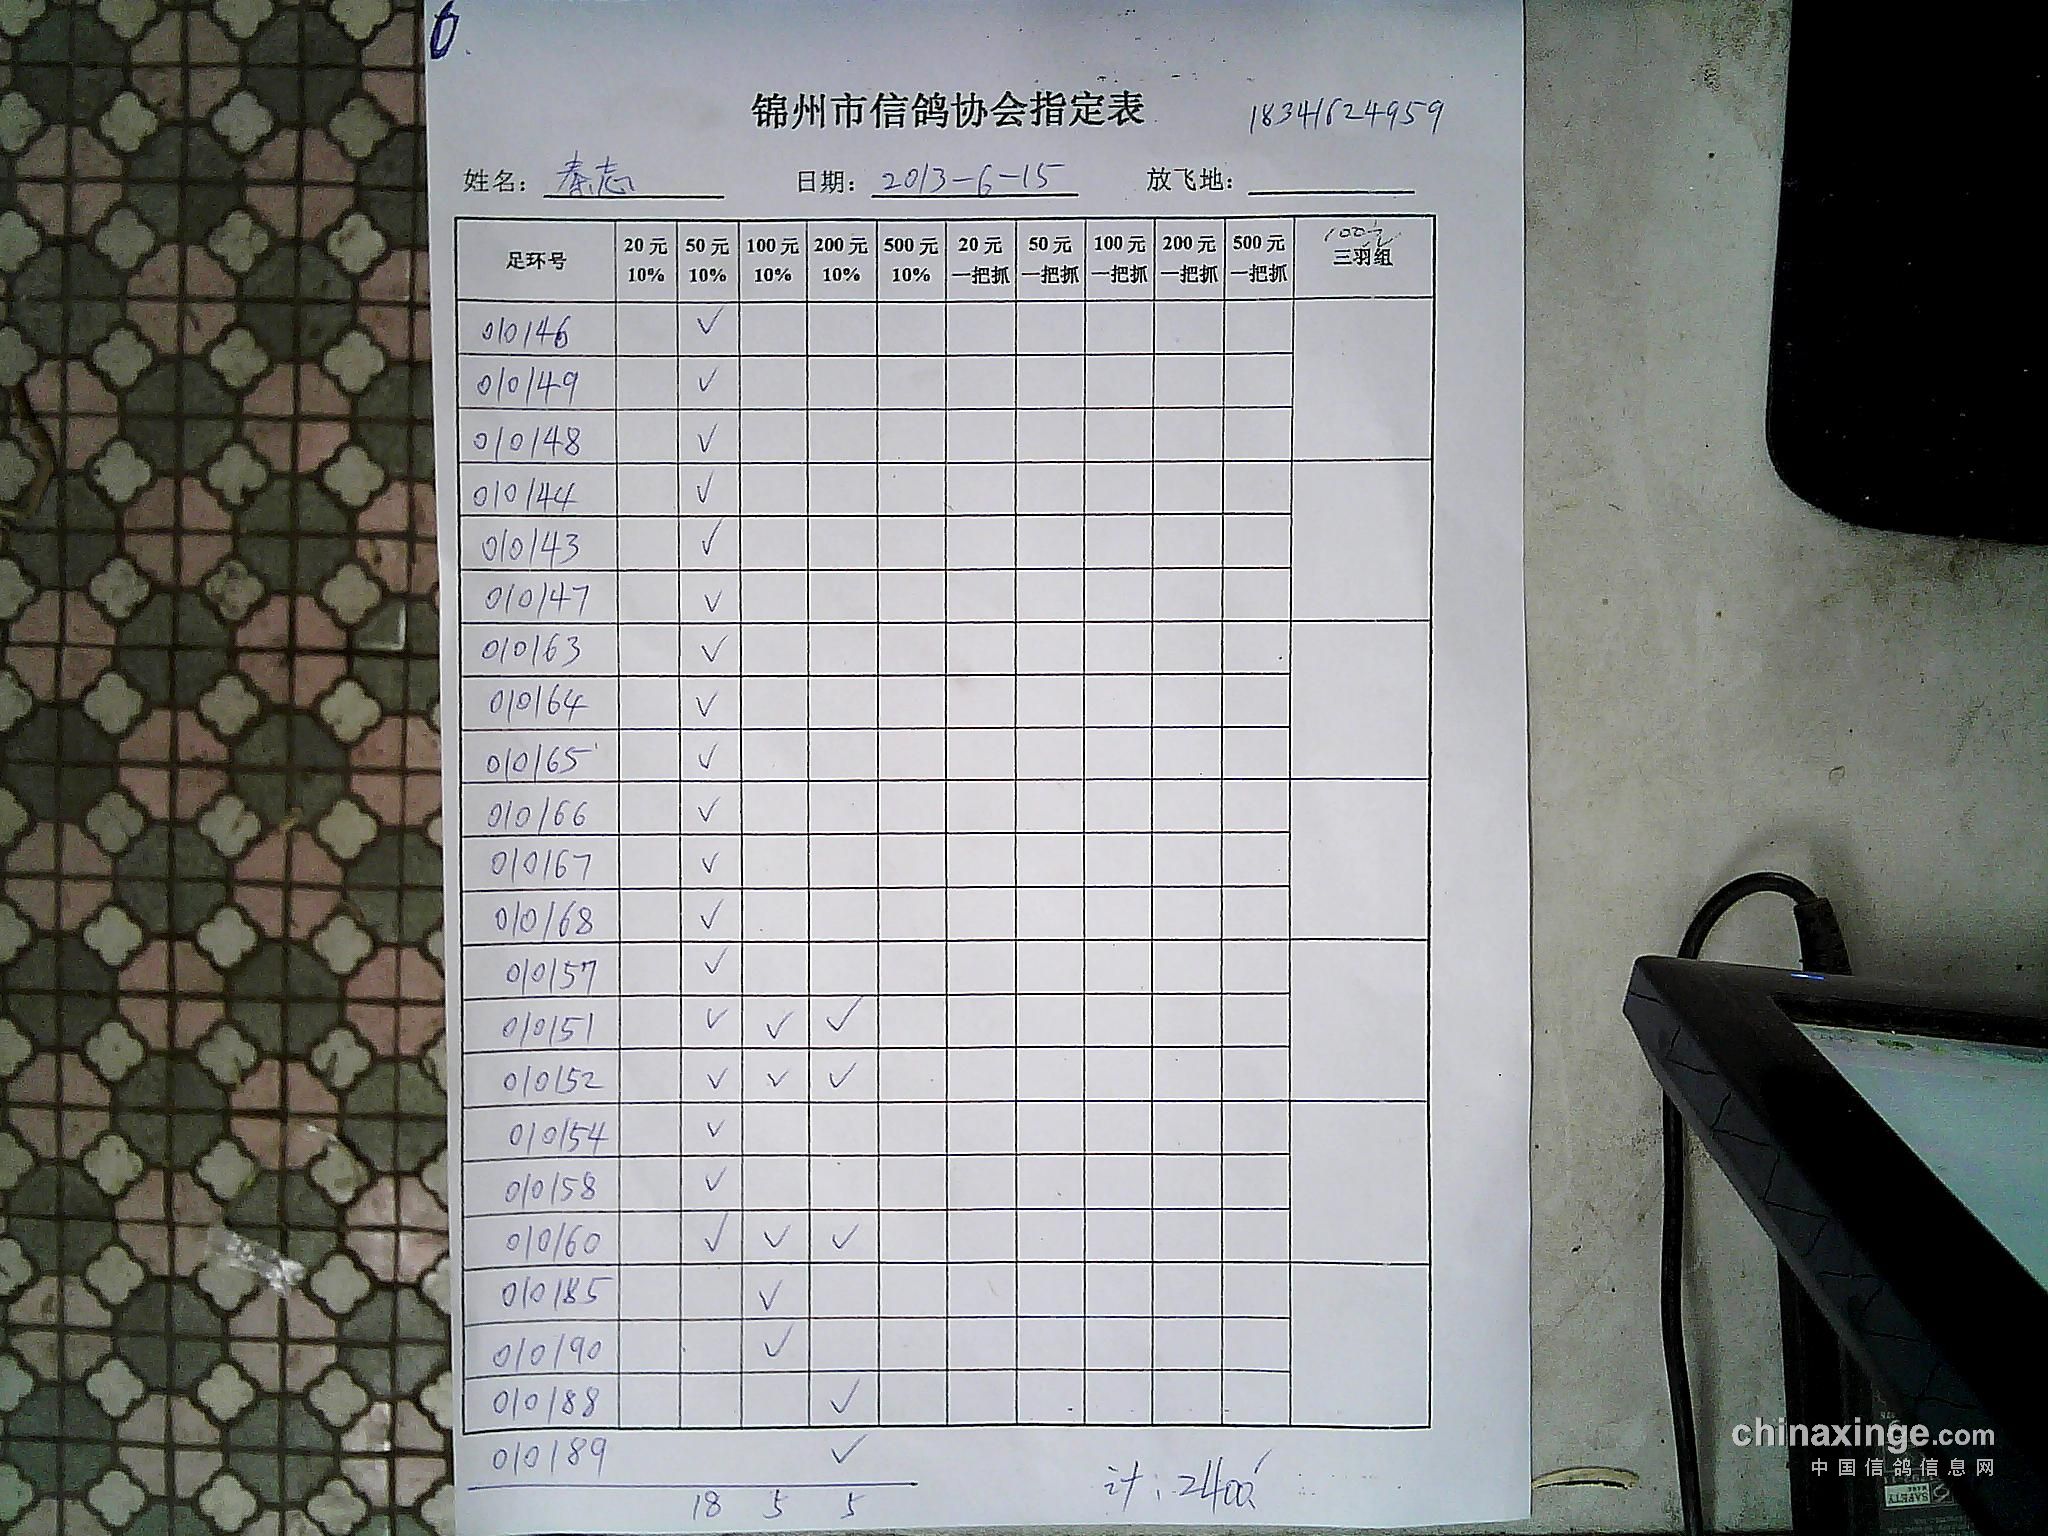 锦州市信鸽协会指定表 18341624959
姓名：秦志 日期：2013-6-15 放飞地：
100元
足环号 20元 50元 100元 200元 500元 20元 50元 100元 200元 500元 三羽组
10% 10% 10% 10% 10% 一把抓 一把抓 一把抓 一把抓 一把抓
010146 ✓
010149 ✓
010148 ✓
010144 ✓
010143 ✓
010147 ✓
010163 ✓
010164 ✓
010165 ✓
010166 ✓
010167 ✓
010168 ✓
010157 ✓
010151 ✓ ✓ ✓
010152 ✓ ✓ ✓
010154 ✓
010158 ✓
010160 ✓ ✓ ✓
010185 ✓
010190 ✓
010188 ✓
010189 ✓
18 5 5 计：2400
chinaxinge.com
中国信鸽信息网